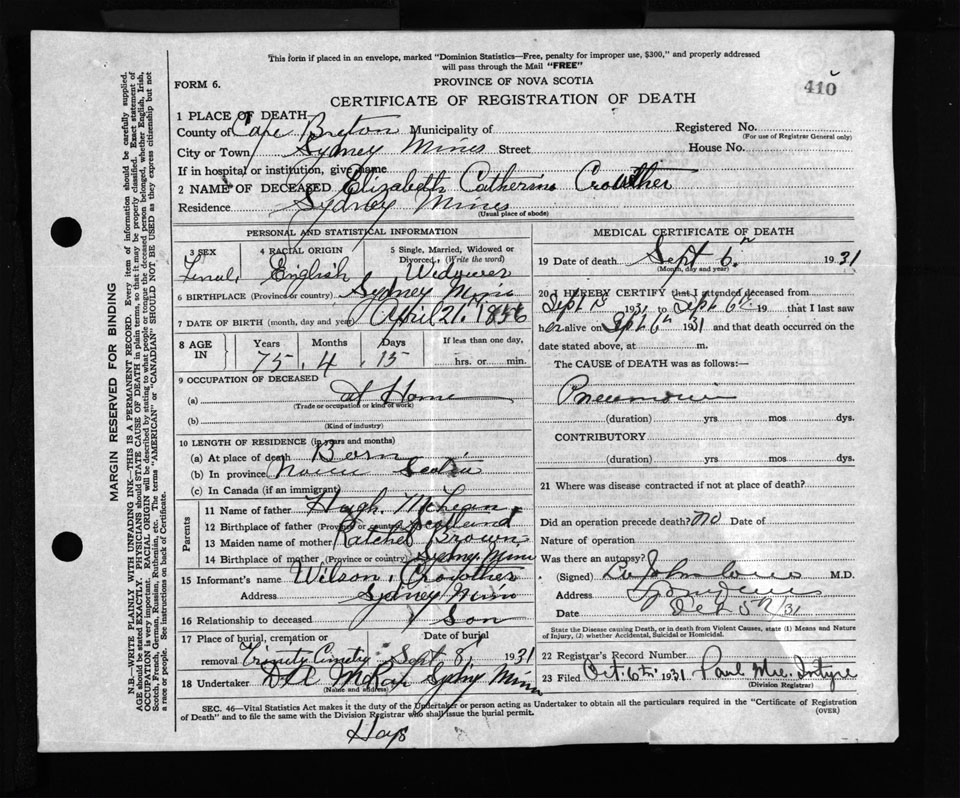 This form if placed in an envelope, marked "Dominion Statistics—Free, penalty for improper use, $300," and properly addressed
will pass through the Mail "FREE"
FORM 6.
PROVINCE OF NOVA SCOTIA
410
CERTIFICATE OF REGISTRATION OF DEATH
1 PLACE OF DEATH
County of Cape Breton Municipality of Registered No.
(For use of Registrar General only)
City or Town Sydney Mines Street House No.
If in hospital or institution, give name
2 NAME OF DECEASED Elizabeth Catherine Crowther
Residence Sydney Mines
(Usual place of abode)
PERSONAL AND STATISTICAL INFORMATION
3 SEX 4 RACIAL ORIGIN 5 Single, Married, Widowed or
Divorced, (Write the word)
Femal English Widower
6 BIRTHPLACE (Province or country) Sydney Mines
7 DATE OF BIRTH (month, day and year) April 21. 1856
8 AGE IN Years Months Days If less than one day,
75 4 15 hrs. or min.
9 OCCUPATION OF DECEASED
(a) at Home
(Trade or occupation or kind of work)
(b)
(Kind of industry)
10 LENGTH OF RESIDENCE (in years and months)
(a) At place of death Born
(b) In province Nova Scotia
(c) In Canada (if an immigrant)
Parents
11 Name of father Hugh McLean
12 Birthplace of father (Province or country) Scotland
13 Maiden name of mother Ratchel Brown
14 Birthplace of mother (Province or country) Sydney Mines
15 Informant's name Wilson Crowther
Address Sydney Mines
16 Relationship to deceased Son
17 Place of burial, cremation or Date of burial
removal Trinity Cimetry Sept 8 1931
18 Undertaker D A McRae Sydney Mines
(Name and address)
MEDICAL CERTIFICATE OF DEATH
19 Date of death Sept 6. 1931
(Month, day and year)
20 I HEREBY CERTIFY that I attended deceased from
Sept 1931 to Sept 6th 19 that I last saw
her alive on Sept 6th 1931 and that death occurred on the
date stated above, at m.
The CAUSE OF DEATH was as follows:—
Pneumonia
(duration) yrs mos dys.
CONTRIBUTORY
(duration) yrs mos dys.
21 Where was disease contracted if not at place of death?
Did an operation precede death? no Date of
Nature of operation
Was there an autopsy?
(Signed) M.D.
Address
Date Oct 5th/31
State the Disease causing Death, or in death from Violent Causes, state (1) Means and Nature
of Injury, (2) whether Accidental, Suicidal or Homicidal.
22 Registrar's Record Number
23 Filed Oct. 6th 1931 Paul Mc. Intyre
(Division Registrar)
SEC. 46—Vital Statistics Act makes it the duty of the Undertaker or person acting as Undertaker to obtain all the particulars required in the "Certificate of Registration
of Death" and to file the same with the Division Registrar who shall issue the burial permit. (OVER)
Hays
MARGIN RESERVED FOR BINDING
N.B.—WRITE PLAINLY WITH UNFADING INK—THIS IS A PERMANENT RECORD. Every item of information should be carefully supplied.
AGE should be stated EXACTLY. PHYSICIANS should STATE CAUSE OF DEATH in plain terms, so that it may be properly classified. Exact statement of
OCCUPATION is very important. RACIAL ORIGIN will be described by stating to what people or tongue the deceased person belonged, whether English, Irish,
Scotch, French, German, Russian, Ruthenian, etc. The terms "AMERICAN" or "CANADIAN" SHOULD NOT BE USED as they express citizenship but not
a race or people. See instructions on back of Certificate.